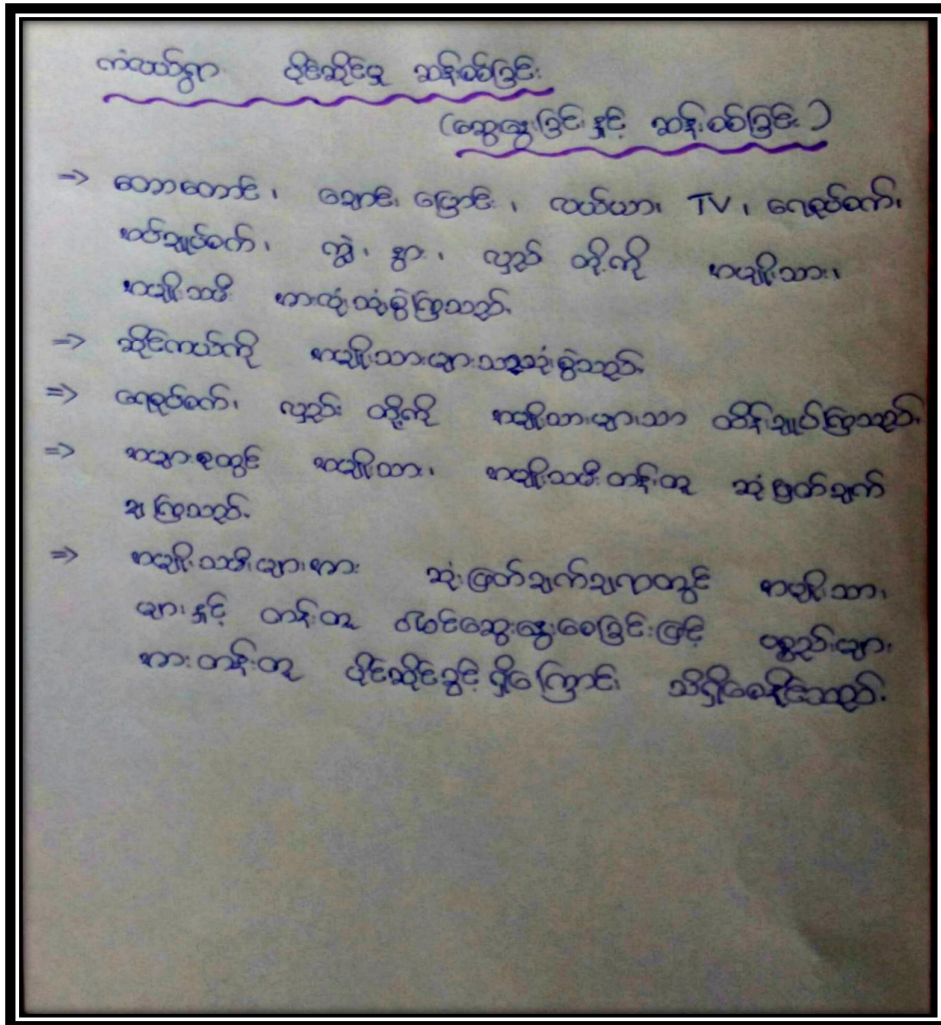 ကံလယ်ရွာ ပိုင်ဆိုင်မှု ဆန်းစစ်ခြင်း
(ဆွေးနွေးခြင်းနှင့် ဆန်းစစ်ခြင်း)
⇒ တောတောင်၊ ချောင်း မြောင်း၊ လယ်ယာ၊ TV၊ ရေစုပ်စက်၊
အပ်ချုပ်စက်၊ ကျွဲ၊ နွား၊ လှည်း တို့ကို အမျိုးသား၊
အမျိုးသမီး အားလုံးသုံးစွဲကြသည်။
⇒ ဆိုင်ကယ်ကို အမျိုးသားများသာသုံးစွဲသည်။
⇒ ရေစုပ်စက်၊ လှည်း တို့ကို အမျိုးသားများသာ ထိန်းချုပ်ကြသည်။
⇒ အများစုတွင် အမျိုးသား၊ အမျိုးသမီးတန်းတူ ဆုံးဖြတ်ချက်
ချကြသည်။
⇒ အမျိုးသမီးများအား ဆုံးဖြတ်ချက်ချရာတွင် အမျိုးသား
များနှင့် တန်းတူ ပါဝင်ဆွေးနွေးစေခြင်းဖြင့် ပစ္စည်းများ
အားတန်းတူ ပိုင်ဆိုင်ခွင့်ရှိကြောင်း သိရှိစေနိုင်သည်။